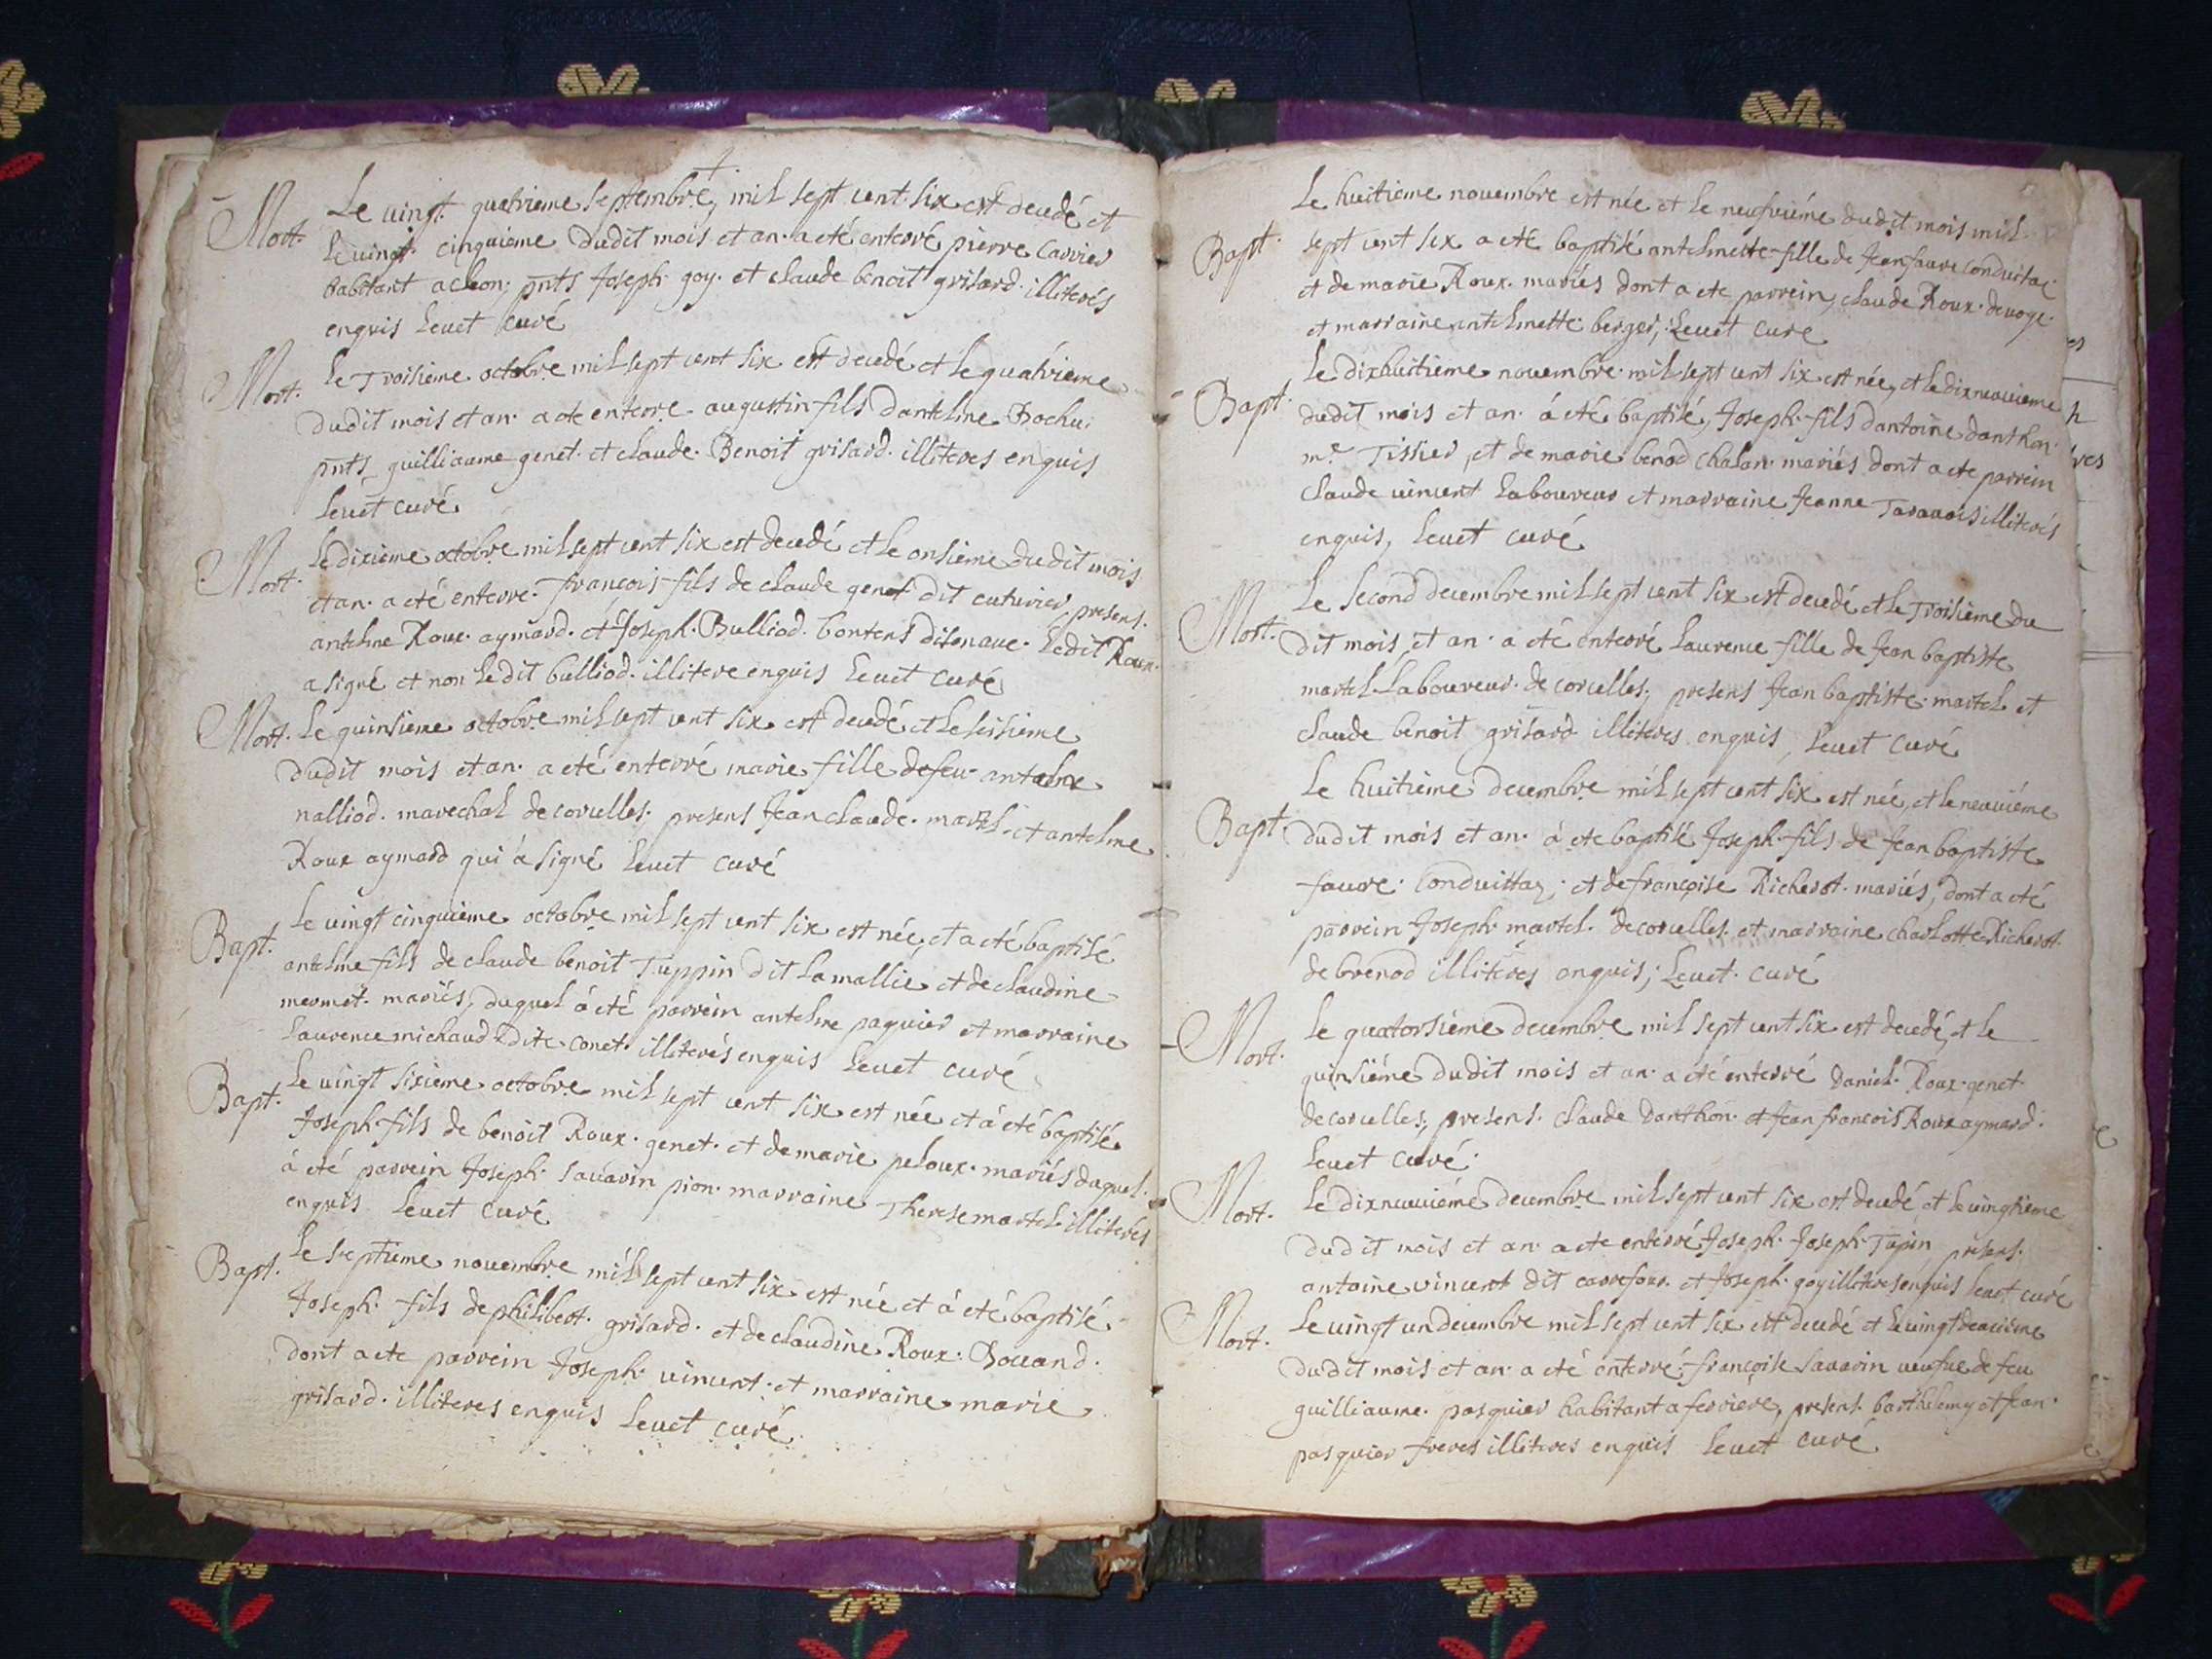 Mort. Le vingt quatrieme septembre, mil sept cent six est decedé et
le vingt cinquieme dudit mois et an a eté enterré pierre Carrier
habitant a pnts Joseph goy et claude benoit grisard illiterés
enquis Levet curé
Mort. Le Troisieme octobre mil sept cent six est decedé et le quatrieme
dudit mois et an a ete enterre augustin fils dantelme Bochu
pnts guilliaume genet et claude Benoit grisard illiteres enquis
Levet curé
Mort. Le dixieme octobre mil sept cent six est decedé et le onsieme dudit mois
et an a eté enterre francois fils de claude genet dit cuturier presens
antelme Roux aymard et Joseph Bulliod Ledit Roux
a signé et non Ledit bulliod illitere enquis Levet Curé
Mort. Le quinsieme octobre mil sept cent six est decedé et le seisieme
dudit mois et an a eté enterré marie fille de feu antelme
nalliod marechal de corcelles, presens Jean claude martel et antelme
Roux aymard qui a signé Levet curé
Bapt. Le vingt cinquieme octobre mil sept cent six est née, et a eté baptisé
antelme fils de claude benoit Tuppin dit la mallie et de claudine
mermet mariés, duquel à été parrein antelme paquier et marraine
Laurence michaud dite Conet illiterés enquis Levet curé
Bapt. Le vingt sixieme octobre mil sept cent six est née et à eté baptisé
Joseph fils de benoit Roux genet et de marie peloux mariés duquel
à eté parrein Joseph savarin pion marraine Therese martel illiteres
enquis Levet Curé
Bapt. Le septieme novembre mil sept cent six est née et à eté baptisé
Joseph fils de philibert grisard et de claudine Roux Bouand
dont a ete parrein Joseph vincent et marraine marie
grisard illiteres enquis Levet curé
Le huitieme novembre est née et le neufvieme dudit mois mil
Bapt. sept cent six a eté baptisé antelmette fille de Jean favre
et de marie Roux mariés dont a ete parrein, claude Roux
et marraine antelmette berger, Levet Cure
Le dixhuitieme novembre mil sept cent six est née, et le dixneuvieme
Bapt. dudit mois et an à eté baptisé, Joseph fils dantoine danthon
me Tissier, et de marie benod chalan mariés dont a ete parrein
claude vincent Laboureur et marraine Jeanne illiterés
enquis, Levet curé
Le second decembre mil sept cent six est decedé et le Troisieme du
Mort. dit mois et an a eté enterré Laurence fille de Jean baptiste
martel Laboureur de corcelles, presens Jean baptiste martel et
claude benoit grisard illiteres enquis, Levet Curé
Le huitieme decembre mil sept cent six est née, et le neuviéme
Bapt. dudit mois et an à ete baptisé Joseph fils de Jean baptiste
favre Conduittaz, et de françoise Richerot mariés, dont a eté
parrein Joseph martel de corcelles et marraine charlotte Richerot
de brenod illiteres enquis, Levet curé
Mort. Le quatorsiéme decembre mil sept cent six est decedé, et le
quinsiéme dudit mois et an a eté enterré daniel Roux genet
de corcelles, presens claude danthon et Jean francois Roux aymard
Levet curé
Mort. Le dixneuviéme decembre mil sept cent six est decedé et le vingtieme
dudit mois et an a ete enterré Joseph Joseph Tapin presens
antoine vincent dit carrefour et Joseph goy illiteres enquis Levet curé
Mort. Le vingt un decembre mil sept cent six est decedé et le vingt deuxieme
dudit mois et an a eté enterré françoise savarin veufve de feu
guilliaume pasquier habitant a ferriere, presens barthelemy et Jean
pasquier freres illiteres enquis Levet curé